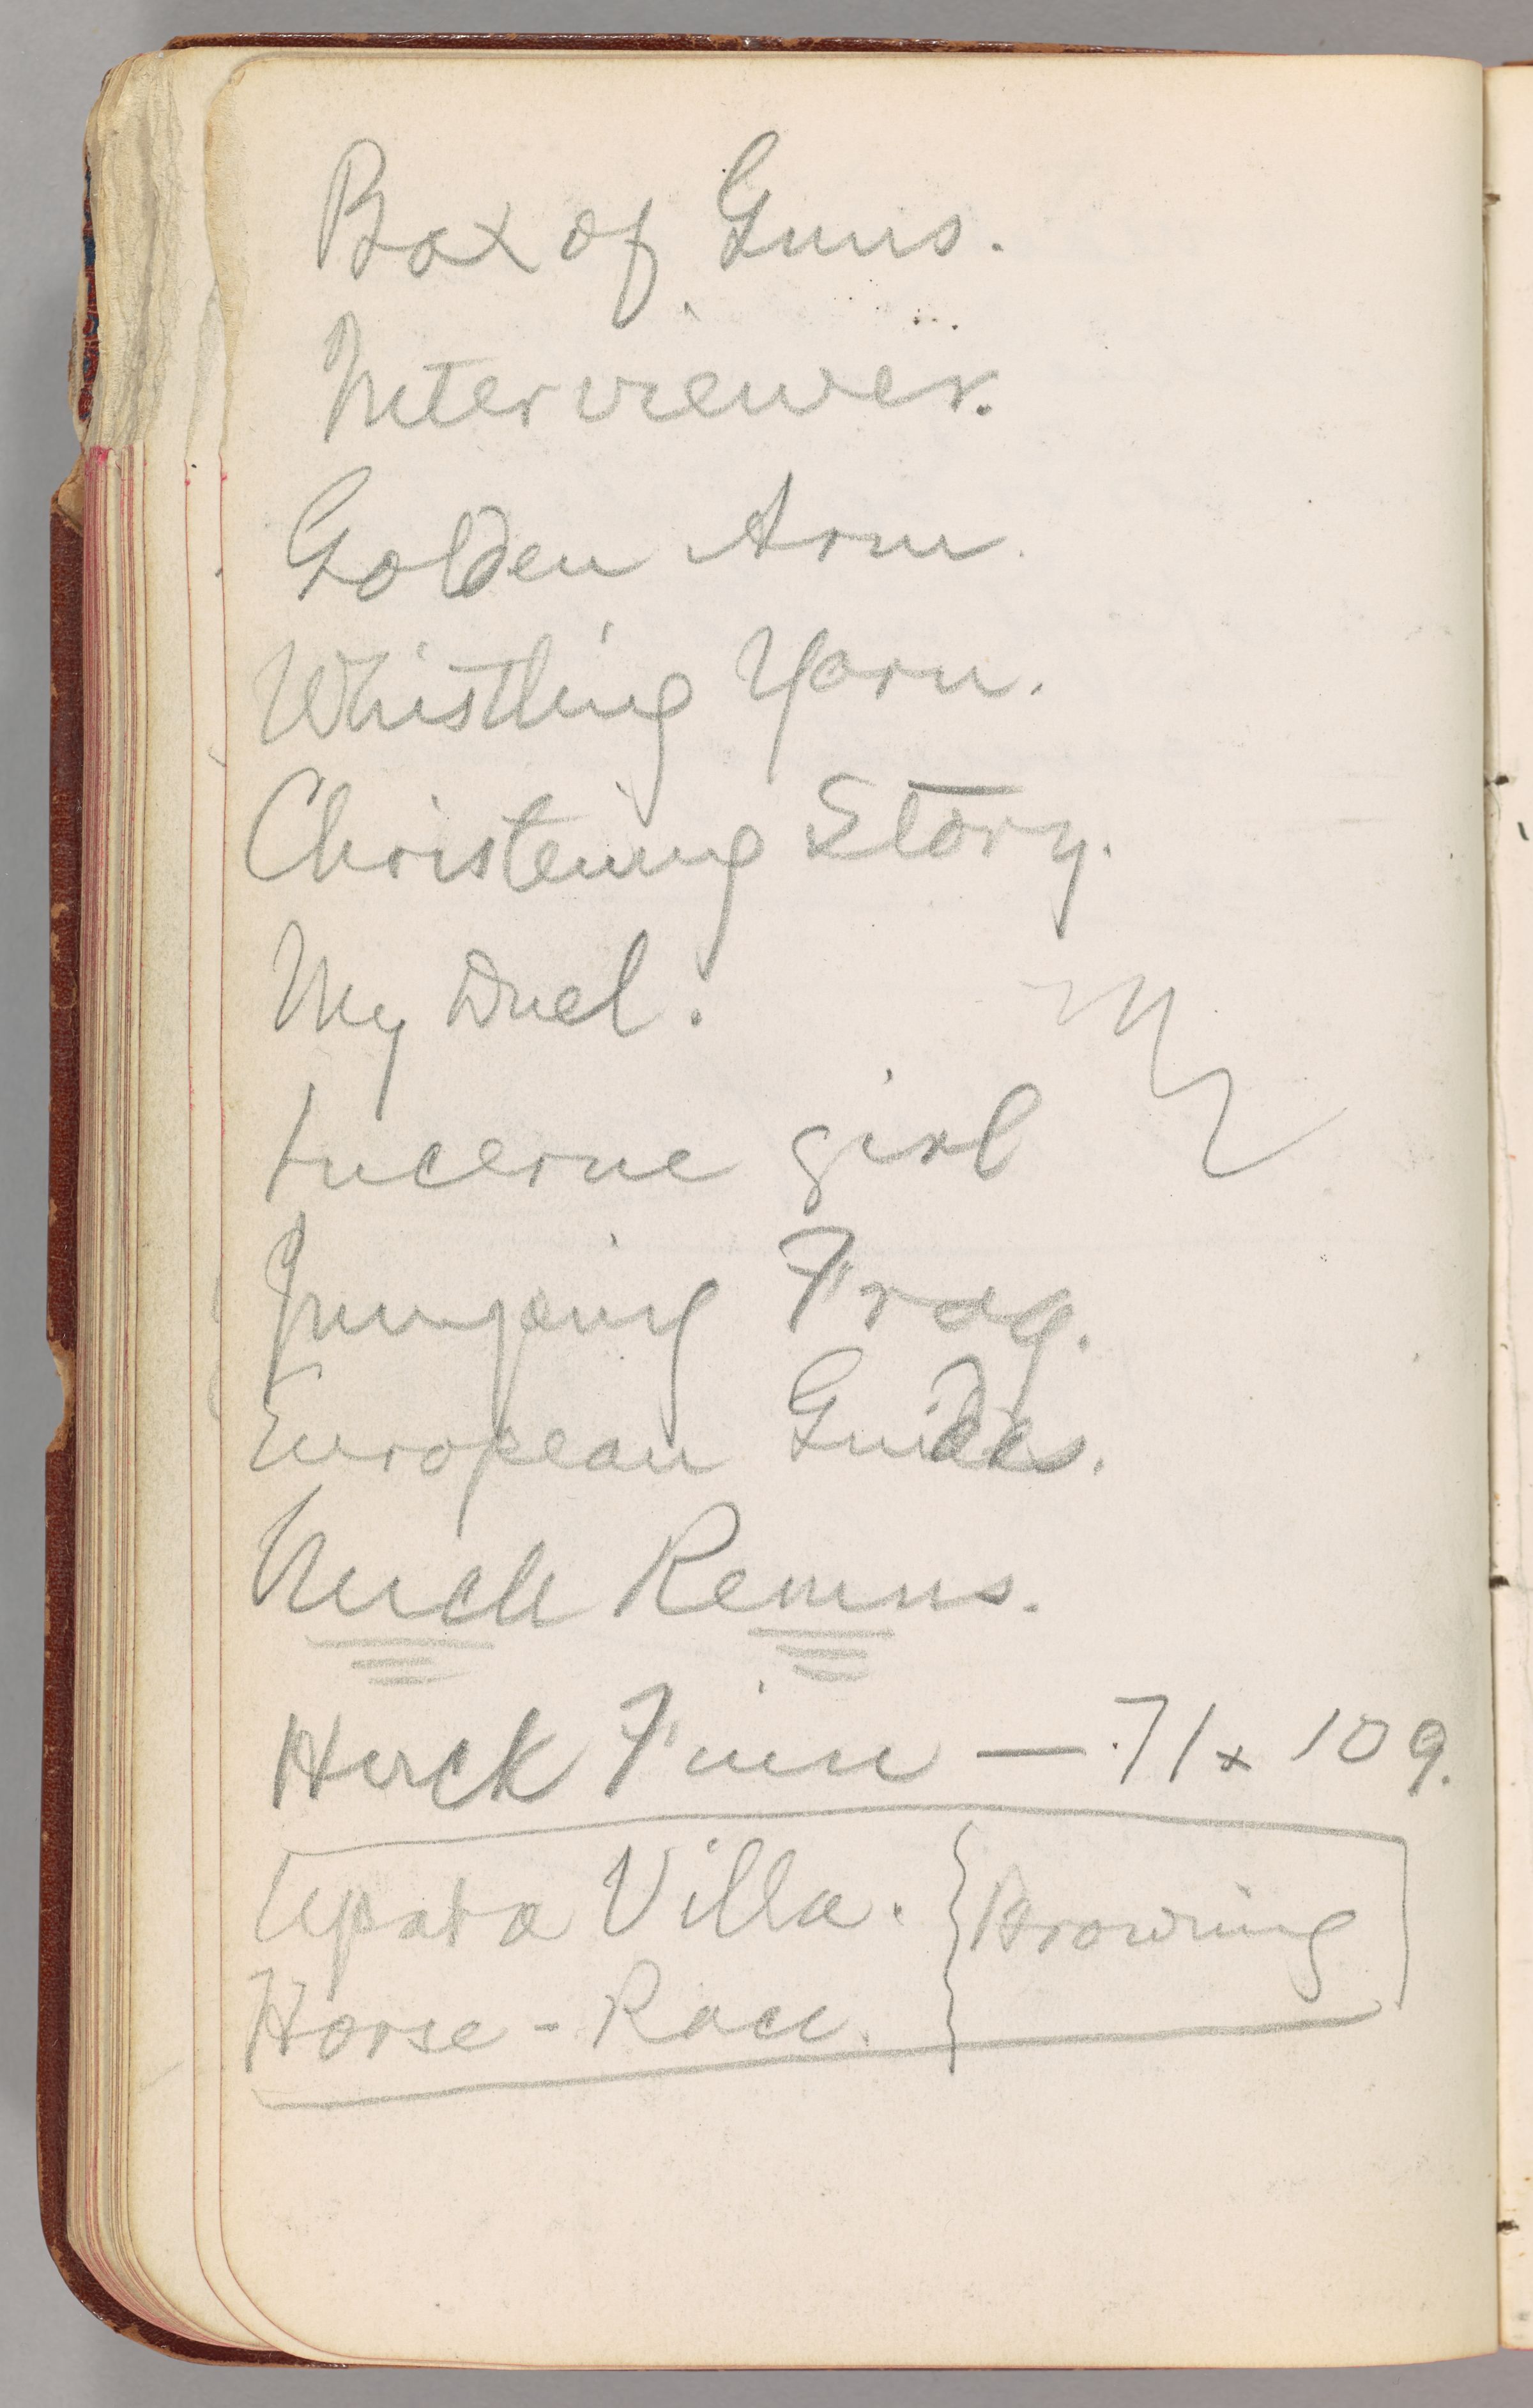 Box of Guns.
Interviewer.
Golden Arm.
Whistling Yarn.
Christening Story.
My Duel.
Lucerne girl
Jumping Frog.
European Guides.
Uncle Remus.
Huck Finn — 71 & 109.
Up at a Villa. } Browning
Horse-Race.